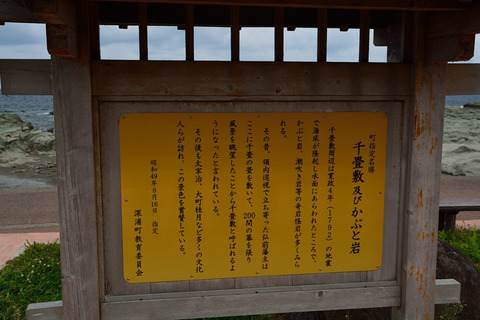 町指定名勝
千畳敷及びかぶと岩
千畳敷周辺は寛政4年(1792)の地震
で海岸が隆起し水面にあらわれたところで、
かぶと岩、潮吹き岩等の奇岩怪岩が多くみら
れる。
その昔、領内巡視で立ち寄った弘前藩主は
ここに千畳の畳を敷いて、200間の幕を張り
風景を眺望したことから千畳敷と呼ばれるよ
うになったと言われている。
その後も太宰治、大町桂月など多くの文化
人らが訪れ、この景色を賞賛している。
昭和49年8月16日 指定
深浦町教育委員会